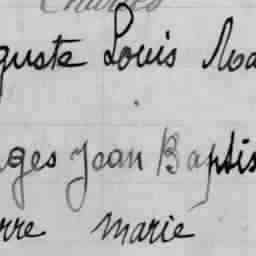 Charles
guste Louis
ges Jean Baptis
rre marie